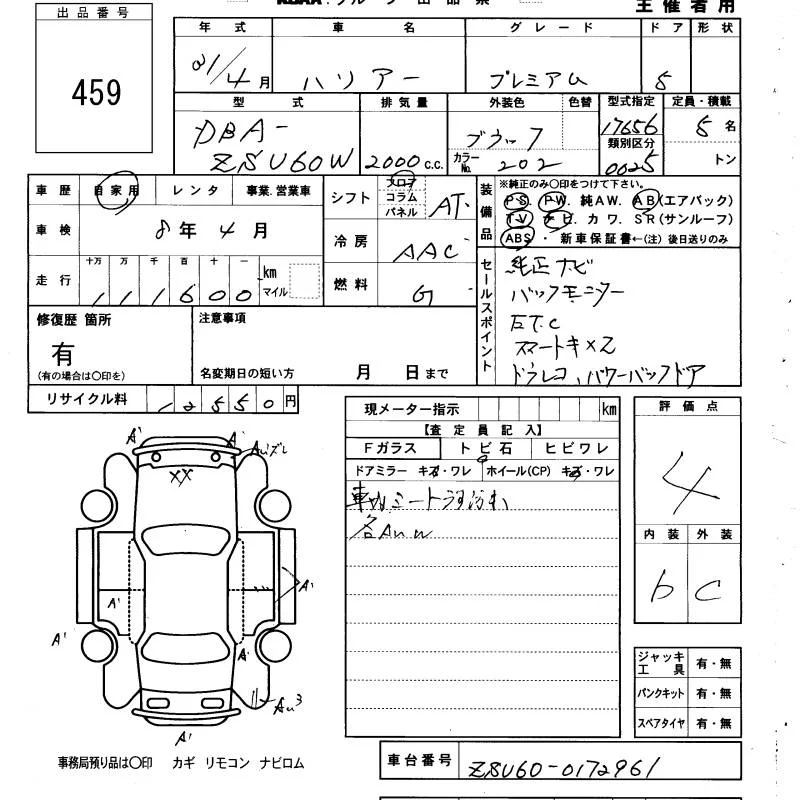 主催者用
出品番号
459
年式 車名 グレード ドア 形状
21/4月 ハリアー プレミアム 5
型式 排気量 外装色 色替 型式指定 定員・積載
DBA-
ZSU60W 2000c.c. ブラック 17656 5名
類別区分
カラーNo. 202 0025 トン
車歴 自家用 レンタ 事業.営業車
車検 8年4月
走行 十万 万 千 百 十 一
111600 km マイル
シフト フロア コラム パネル AT
冷房 AAC
燃料 G
装備品 ※純正のみ○印をつけて下さい。
PS PW. 純AW. AB(エアバック)
TV ナビ カワ. SR(サンルーフ)
ABS・新車保証書←(注)後日送りのみ
セールスポイント
純正ナビ
バックモニター
ETC
スマートキ×2
ドラレコ、パワーバックドア
修復歴 箇所
有
(有の場合は○印を)
注意事項
名変期日の短い方 月 日まで
リサイクル料 12550円
現メーター指示 km
【査定員記入】
Fガラス トビ石 ヒビワレ
ドアミラー キズ・ワレ ホイール(CP) キズ・ワレ
車内シートうす汚れ
各AUW
評価点
4
内装 外装
b C
A' A' AU'ズレ
XX
A'
A'
A'
A'
AU3
A'
ジャッキ工具 有・無
パンクキット 有・無
スペアタイヤ 有・無
事務局預り品は○印 カギ リモコン ナビロム
車台番号 ZSU60-0172961